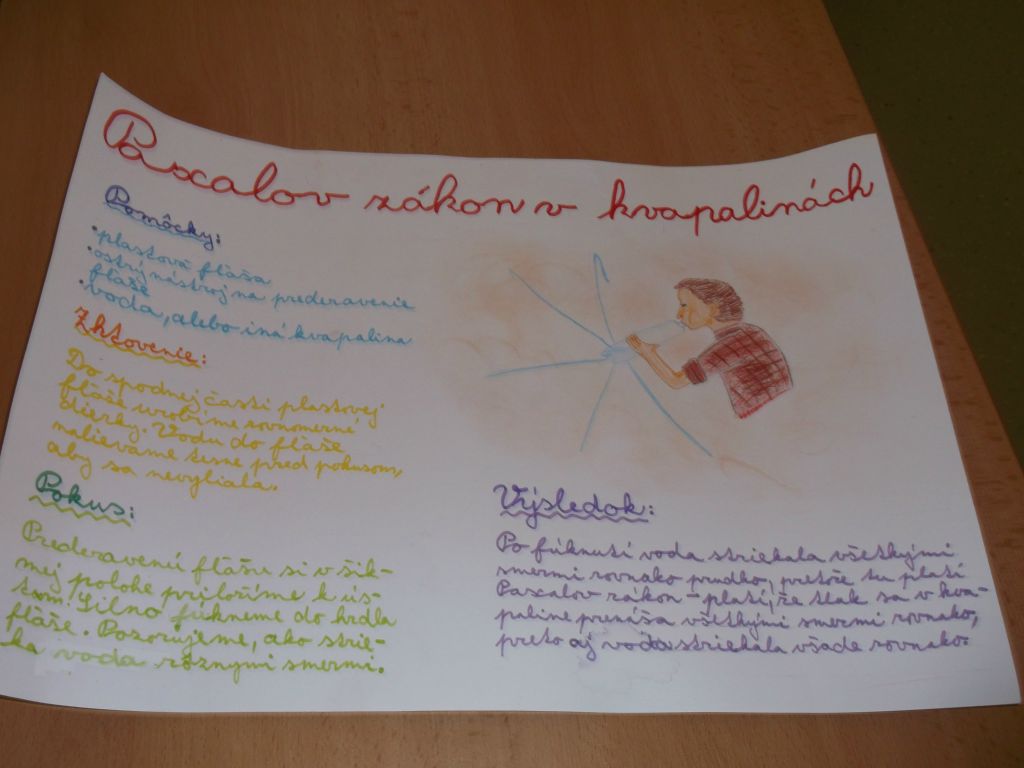 Pascalov zákon v kvapalinách
Pomôcky:
•plastová fľaša
•ostrý nástroj na prederavenie
fľaše
•voda, alebo iná kvapalina
Zhtovenie:
Do spodnej časti plastovej
fľaše urobíme rovnomerné
dierky. Vodu do fľaše
nalievame tesne pred pokusom,
aby sa nevyliala.
Pokus:
Prederavenú fľašu si v šik-
mej polohe priložíme k ús-
tam. Silno fúkneme do hrdla
fľaše. Pozorujeme, ako strie-
ka voda rôznymi smermi.
Výsledok:
Po fúknutí voda striekala všetkými
smermi rovnako prudko, pretože tu platí
Pascalov zákon - platí, že tlak sa v kva-
paline prenáša všetkými smermi rovnako,
preto aj voda striekala všade rovnako.